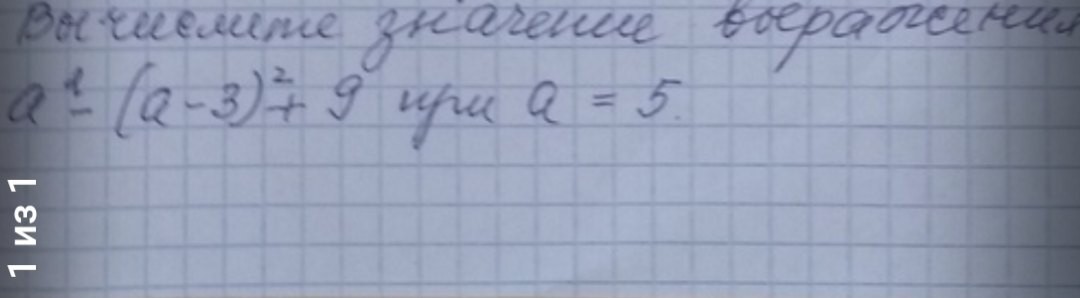 Вычислите значение выражения
a² - (a-3)² + 9 при a = 5.
1 из 1